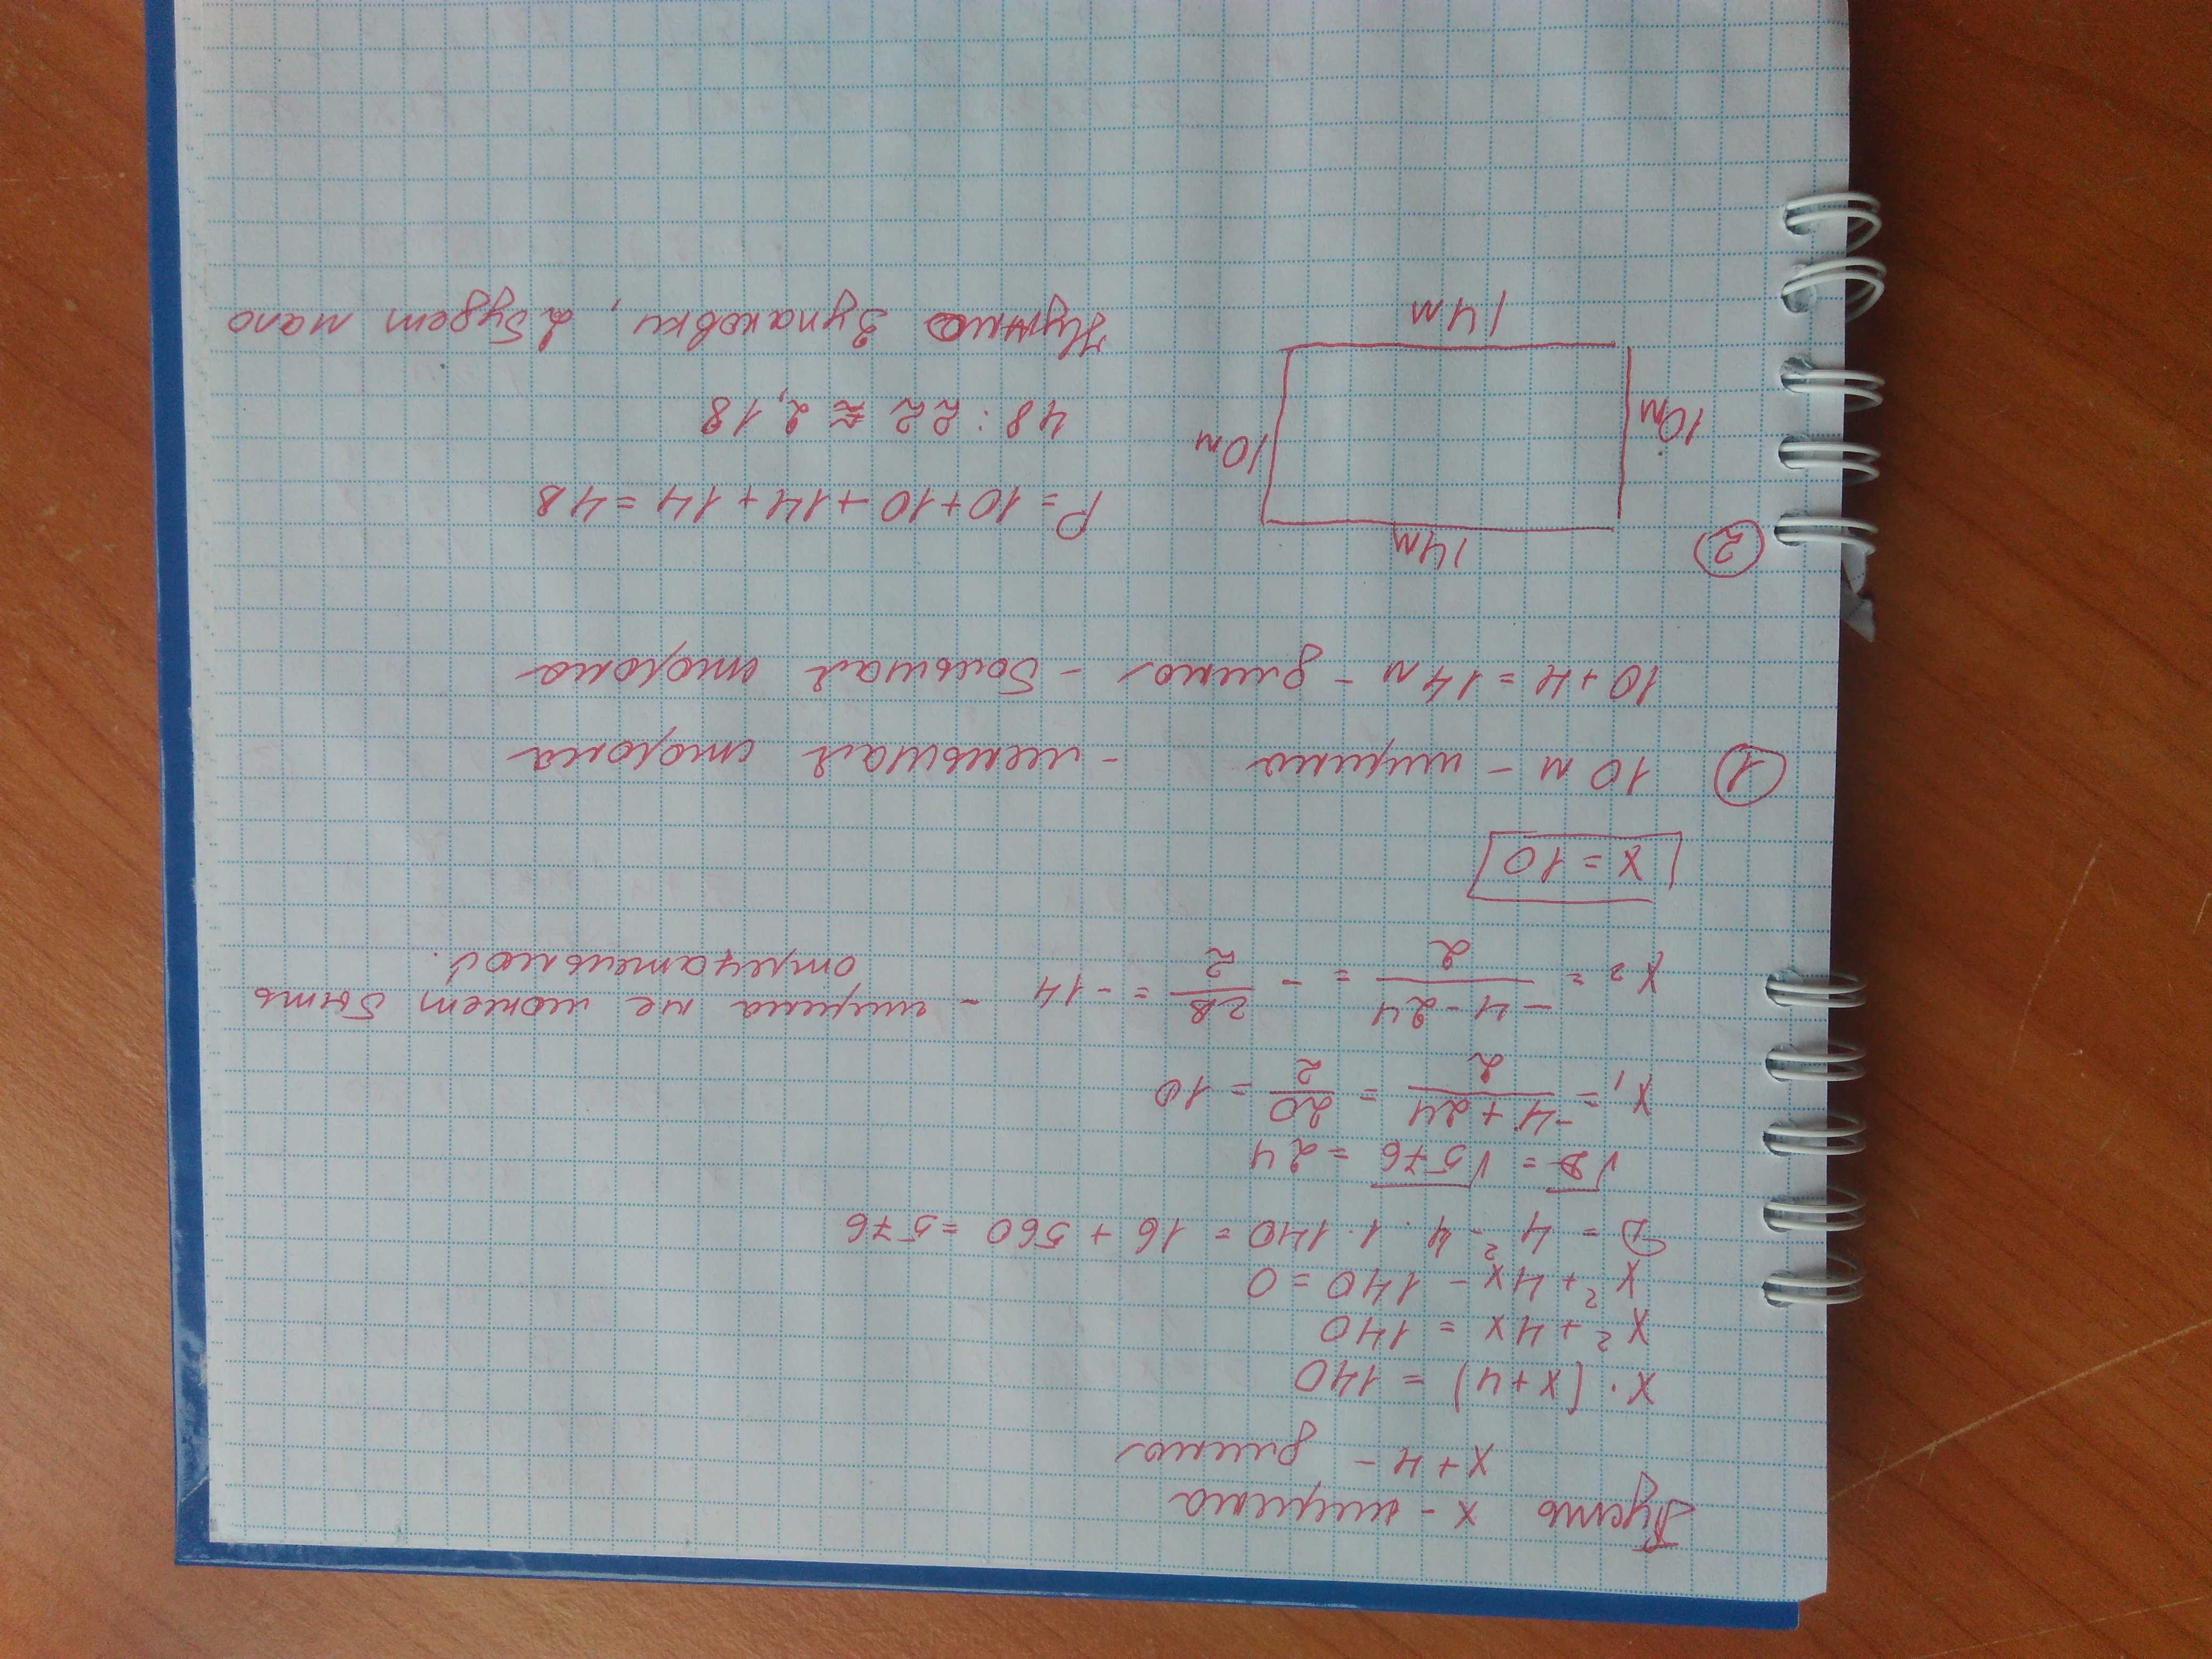 Пусть x - ширина
x+4 - длина
x·(x+4) = 140
x²+4x = 140
x²+4x - 140 = 0
D = 4² - 4·1·140 = 16 + 560 = 576
√D = √576 = 24
x₁ = (-4+24)/2 = 20/2 = 10
x₂ = (-4-24)/2 = -28/2 = -14 - ширина не может быть
отрицательной.
x = 10
① 10 м - ширина - меньшая сторона
10+4 = 14 м - длина - большая сторона
②
14м
10м
10м
14м
P = 10+10+14+14 = 48
48 : 22 ≈ 2,18
Нужно 3 упаковки, 2 будет мало